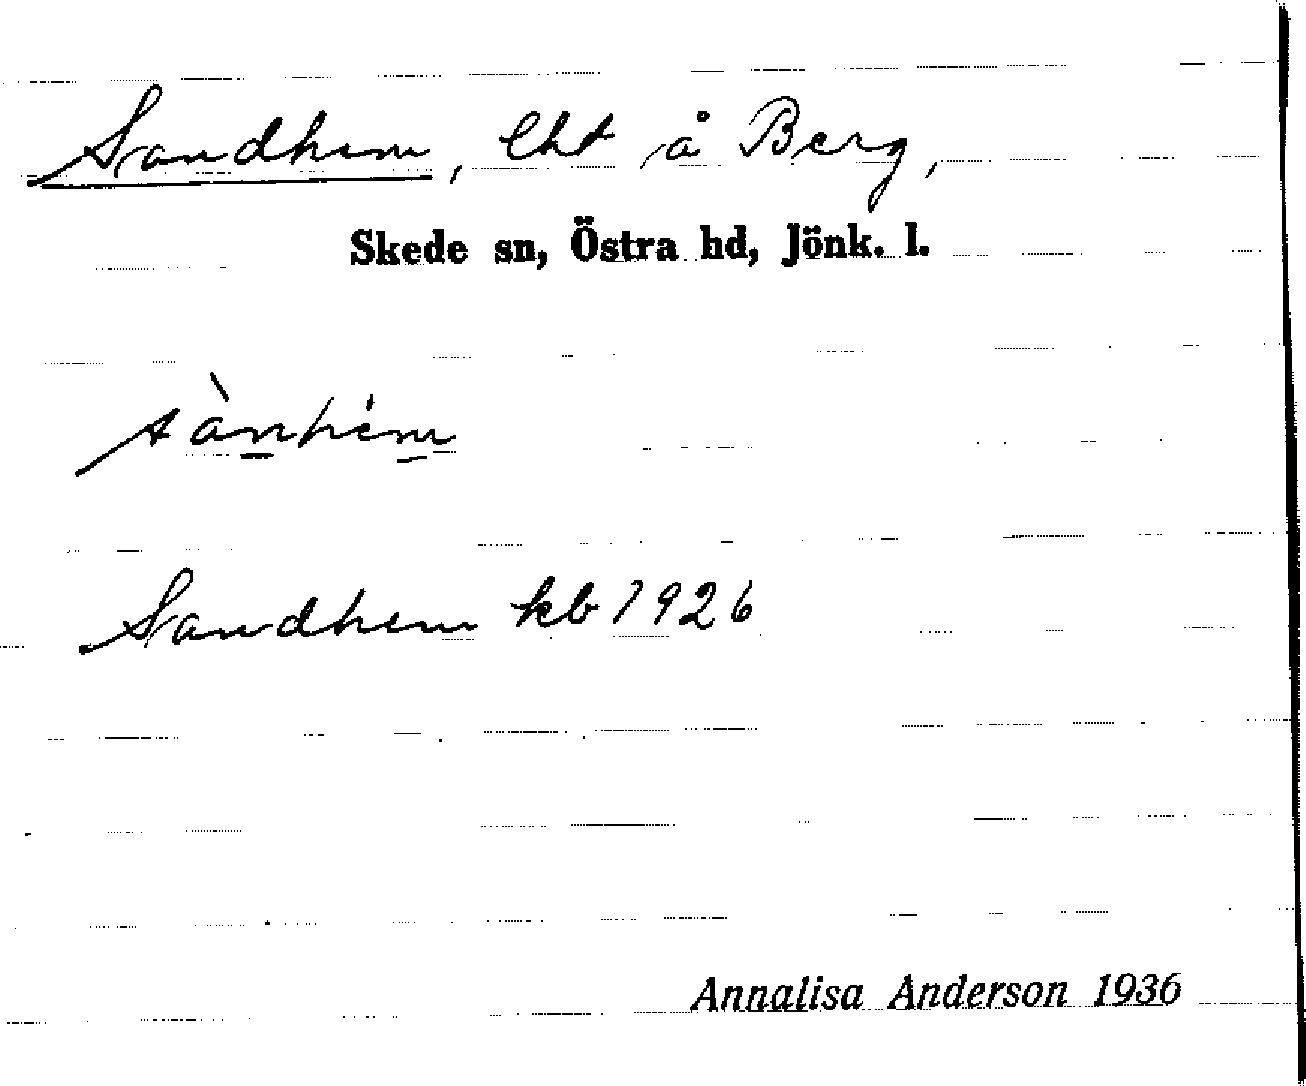 Sandhem, lht å Berg,
Skede sn, Östra hd, Jönk. l.
sànhèm
Sandhem kb 1926
Annalisa Anderson 1936